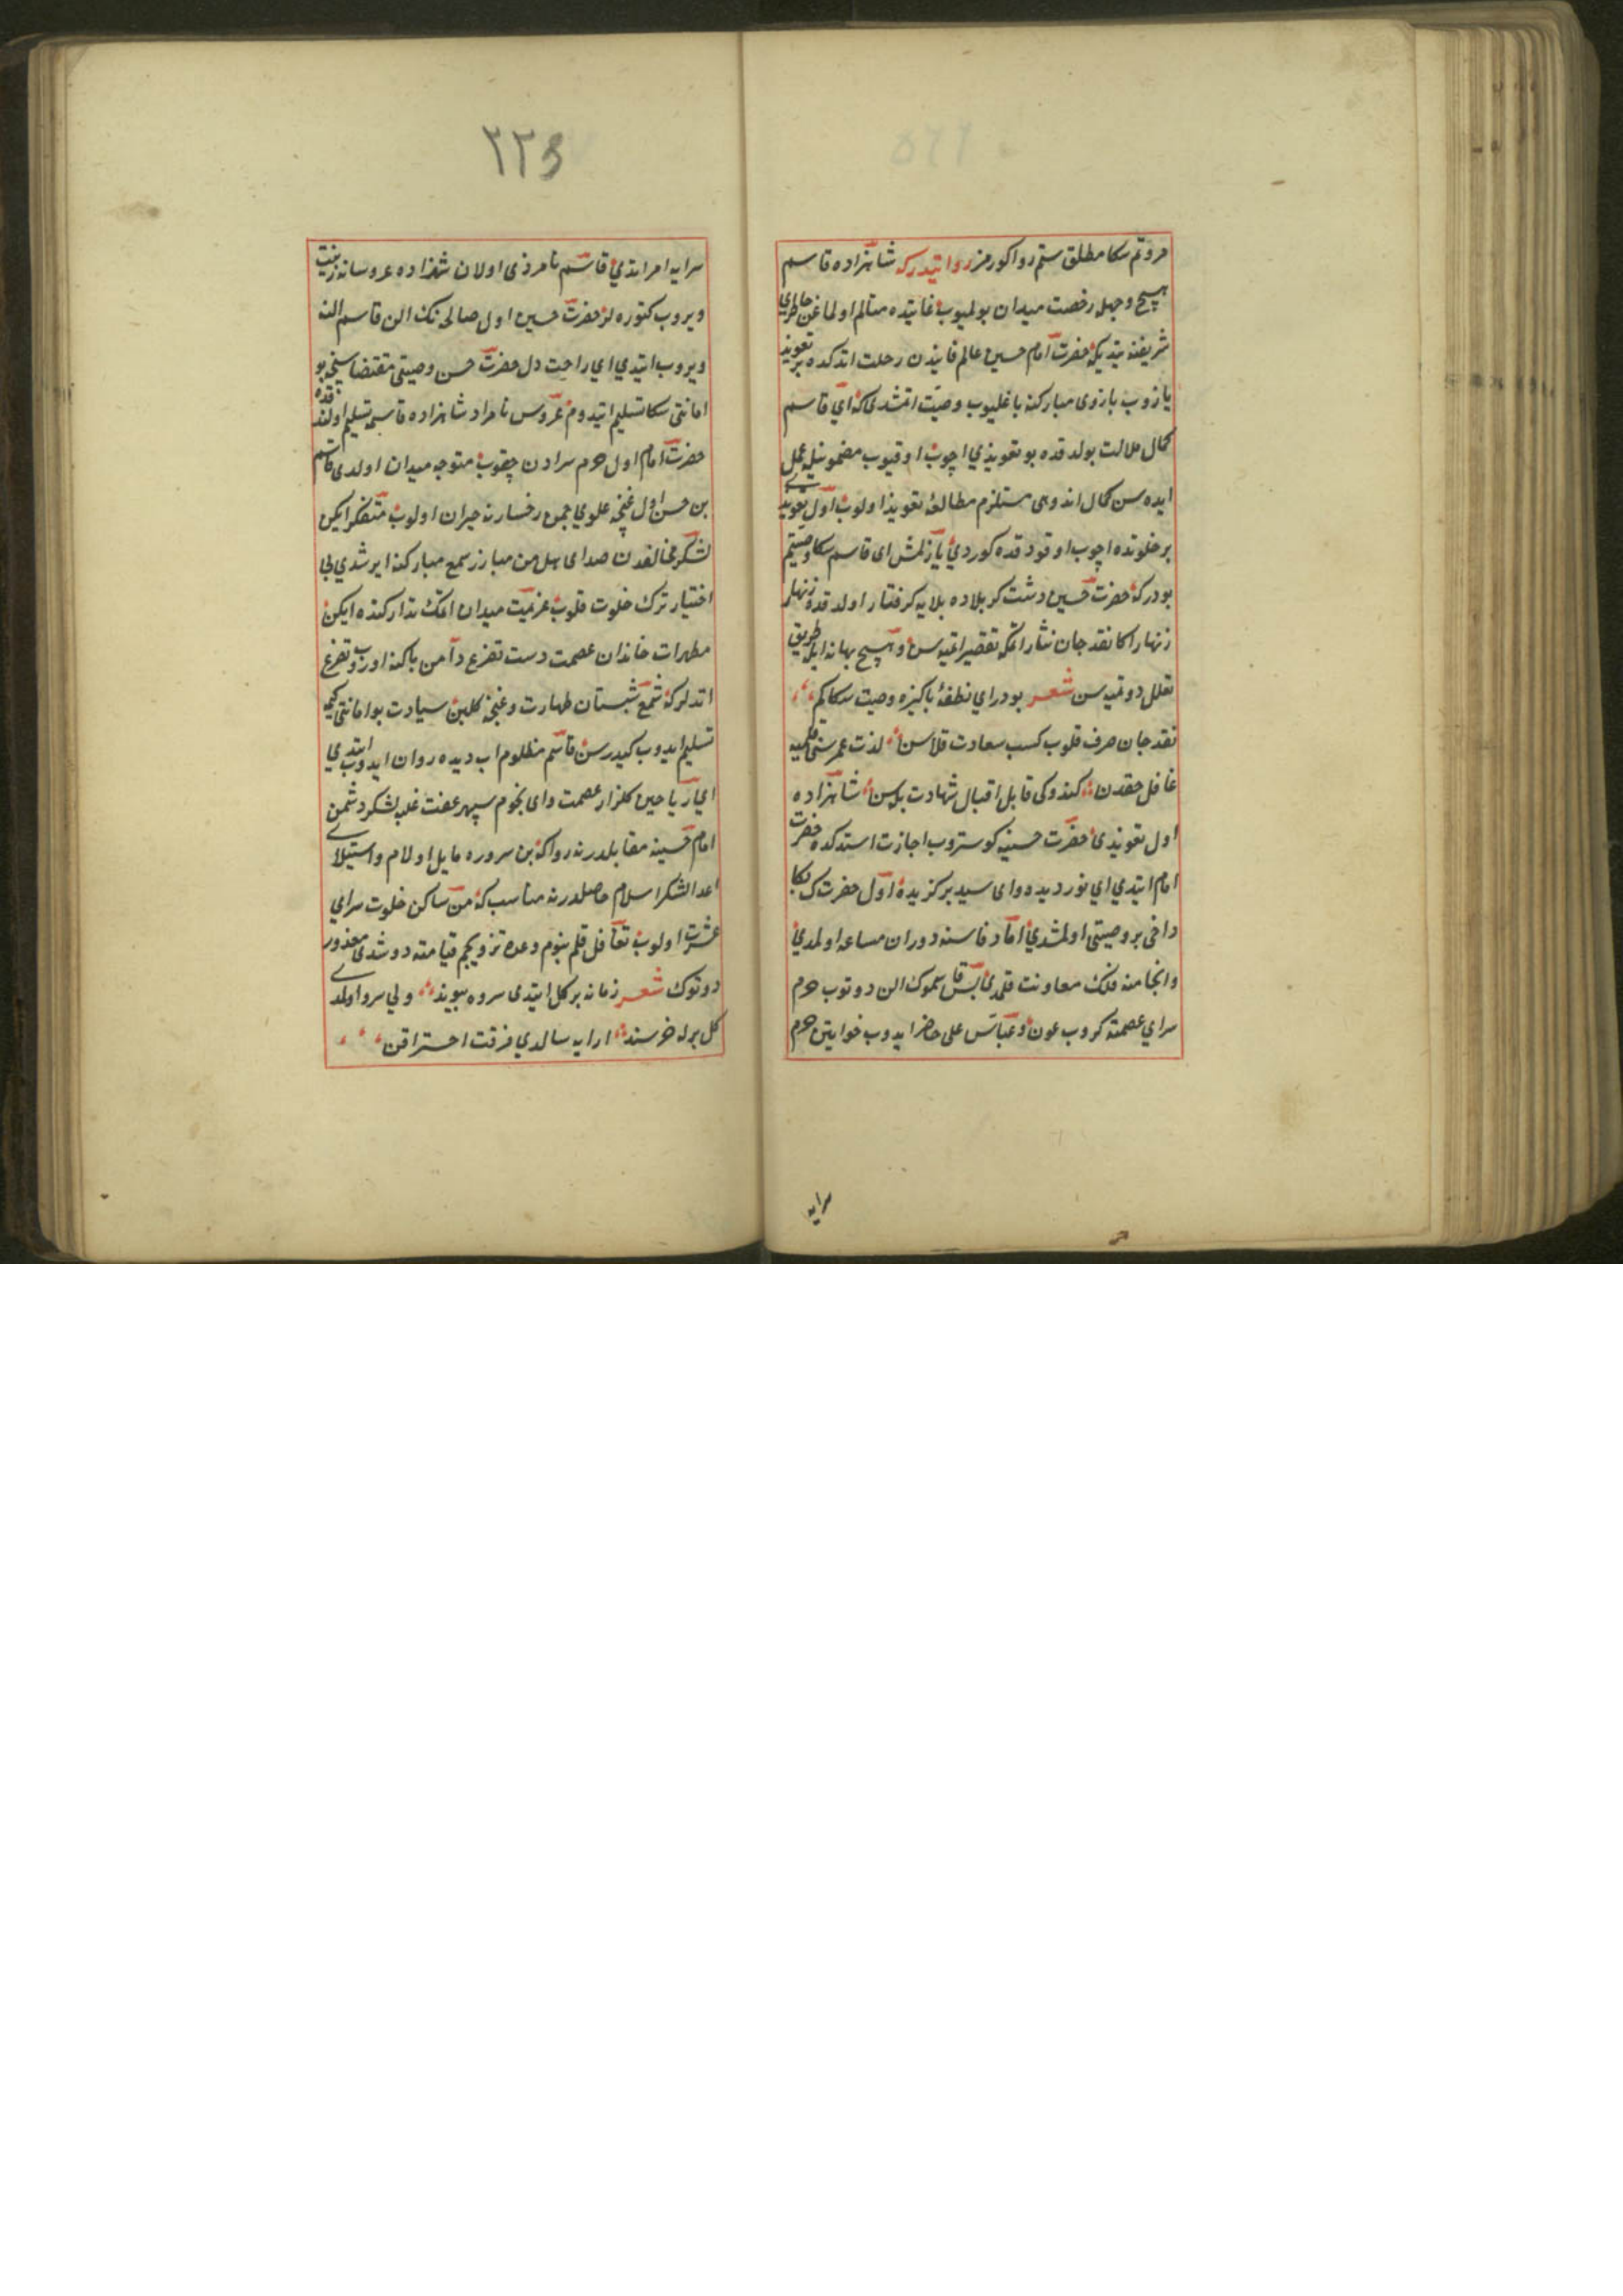 مروتم سكا مطلق ستم روا كورمز روايتدركه شاهزاده قاسم
هيچ وجهله رخصت ميدان بولميوب غايتده متألم اولماغن خاطر
شريفنه يتديكه حضرت امام حسن عالم فانيدن رحلت اتدكده بر تعويذ
يازوب بازوى مباركنه باغليوب وصيت اتمشدى كه اى قاسم
كمال ملالت بولدقده بو تعويذي اچوب اوقيوب مضمونيله عمل
ايده سن كمال اندوهى مستلزم مطالعۀ تعويذ اولوب اول تعويذى
بر خلوتده اچوب اوقودقده كوردي يازلمش اى قاسم سكا وصيتم
بودركه حضرت حسين دشت كربلاده بلايه كرفتار اولدقده زنهار
زنهار اكا نقد جان نثار اتمكه تقصير اتميه سن و هيچ بهانه ايله طريق
تعلل دوتميه سن شعر بودر اي نطفۀ پاكيزه وصيت سكا كم
نقد جان صرف قلوب كسب سعادت قلاسن لذت عمر سنى قلميه
غافل حقدن كندوكى قابل اقبال شهادت بله سن شاهزاده
اول تعويذى حضرت حسينه كوستروب اجازت استدكده حضرت
امام ايتدي اي نور ديده واى سيد بركزيده اول حضرتك بكا
داخى بر وصيتى اولمشدي اما وفاسنه دوران مساعد اولمدي
وانجامنه فلك معاونت قلمدى پس قاسموك الن دوتوب حرم
سراي عصمته كروب عون و عباس على حاضر ايدوب خواتين حرم
سرايه
٢٢٥
سرايه امر ايتدي قاسم نامزدى اولان شهزاده عروسانه زينت
ويروب كتوره لر حضرت حسين اول صالحه نك الن قاسم النه
ويروب ايتدي اي راحت دل حضرت حسن وصيتى مقتضاسنجه بو
امانتى سكا تسليم ايتدوم عروس نامراد شاهزاده قاسمه تسليم اولندقده
حضرت امام اول حرم سرادن چقوب متوجه ميدان اولدى قاسم
بن حسن اول غنچۀ علوي چمن رخسارنه حيران اولوب متفكر ايكن
لشكر مخالفدن صداى هل من مبارز سمع مباركنه ايرشدي بى
اختيار ترك خلوت قلوب عزيمت ميدان اتمك تداركنده ايكن
مطهرات خاندان عصمت دست تضرع دامن پاكنه اوروب تضرع
اتدلر كه شمع شبستان طهارت و غنچۀ كلبن سيادت بو امانتى كيمه
تسليم ايدوب كيدرسن قاسم مظلوم اب ديده روان ايدوب ايتدي
اي رياحين كلزار عصمت واى نجوم سپهر عفت غلبۀ لشكر دشمن
امام حسينه مقابلدر نه روا كه بن سروره مايل اولام و استيلاى
اعدا لشكر اسلام حاصلدر نه مناسب كه من ساكن خلوت سراي
عشرت اولوب تغافل قلم بنوم وعده تزويجم قيامته دوشدى معذور
دوتوك شعر زمانه بر كل ايتدى سروه پيوند ولي سرو اولمدى
كل برله خرسند ارايه سالدي فرقت احتراقن